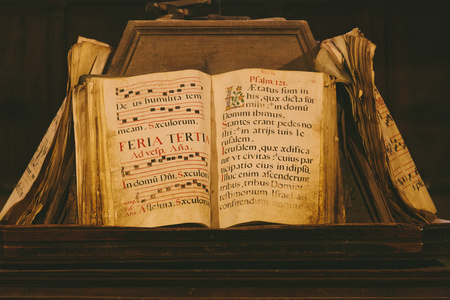 De us humilitatem
meam. Sæculorum.
FERIA TERTIA
Ad vesp. Aña.
In domũ Dñi. Sæculor
Psalm. 121.
Lætatus sum in
his, quæ dicta sũt
mihi: * in domũ
Domini ibimus.
Stantes erant pedes no
stri: * in atrijs tuis Ie
rusalem.
Ierusalem, quæ ædifica
tur vt civitas: * cuius par
ticipatio eius in idipsũ.
Illuc enim ascenderunt
tribus, tribus Domini: *
testimonium Israel ad
confitendum nomini